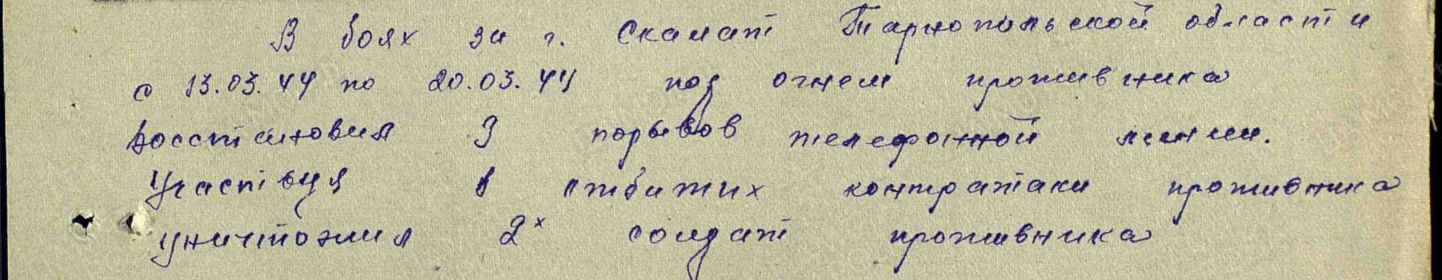 В боях за г. Скалат Тарнопольской области
с 13.03.44 по 20.03.44 под огнем противника
восстановил 9 порывов телефонной линии.
Участвуя в отбитих контратаки противника
уничтожил 2х солдат противника